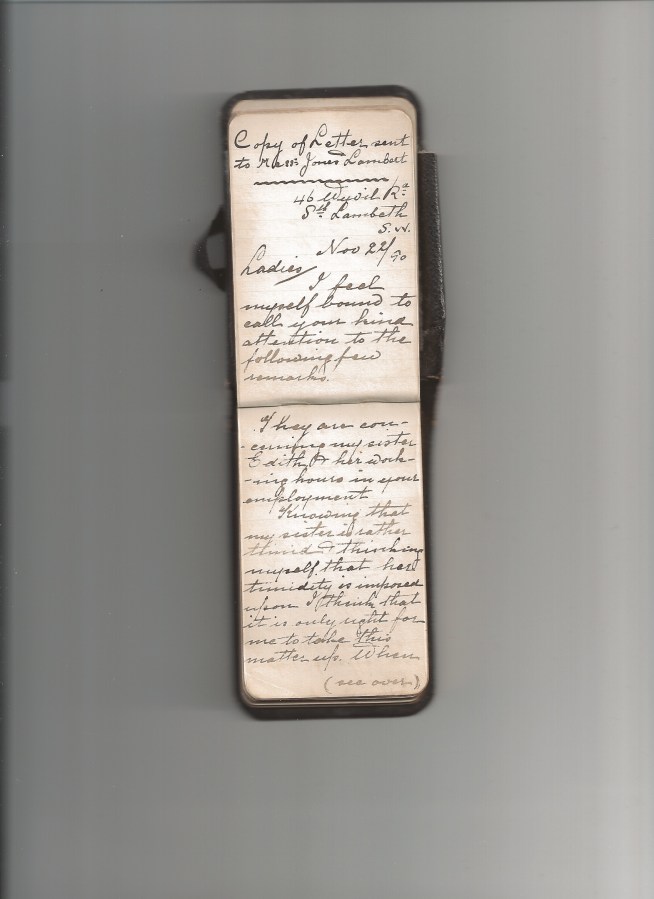 Copy of Letter sent
to Messrs Jones Lambert
46 Wyvil Rd
Sth Lambeth
S.W.
Nov 22/90
Ladies
I feel
myself bound to
call your kind
attention to the
following few
remarks.
They are con-
-cerning my sister
Edith & her work-
-ing hours in your
employment
Knowing that
my sister is rather
timid & thinking
myself that her
timidity is imposed
upon I think that
it is only right for
me to take this
matter up. When
(see over)